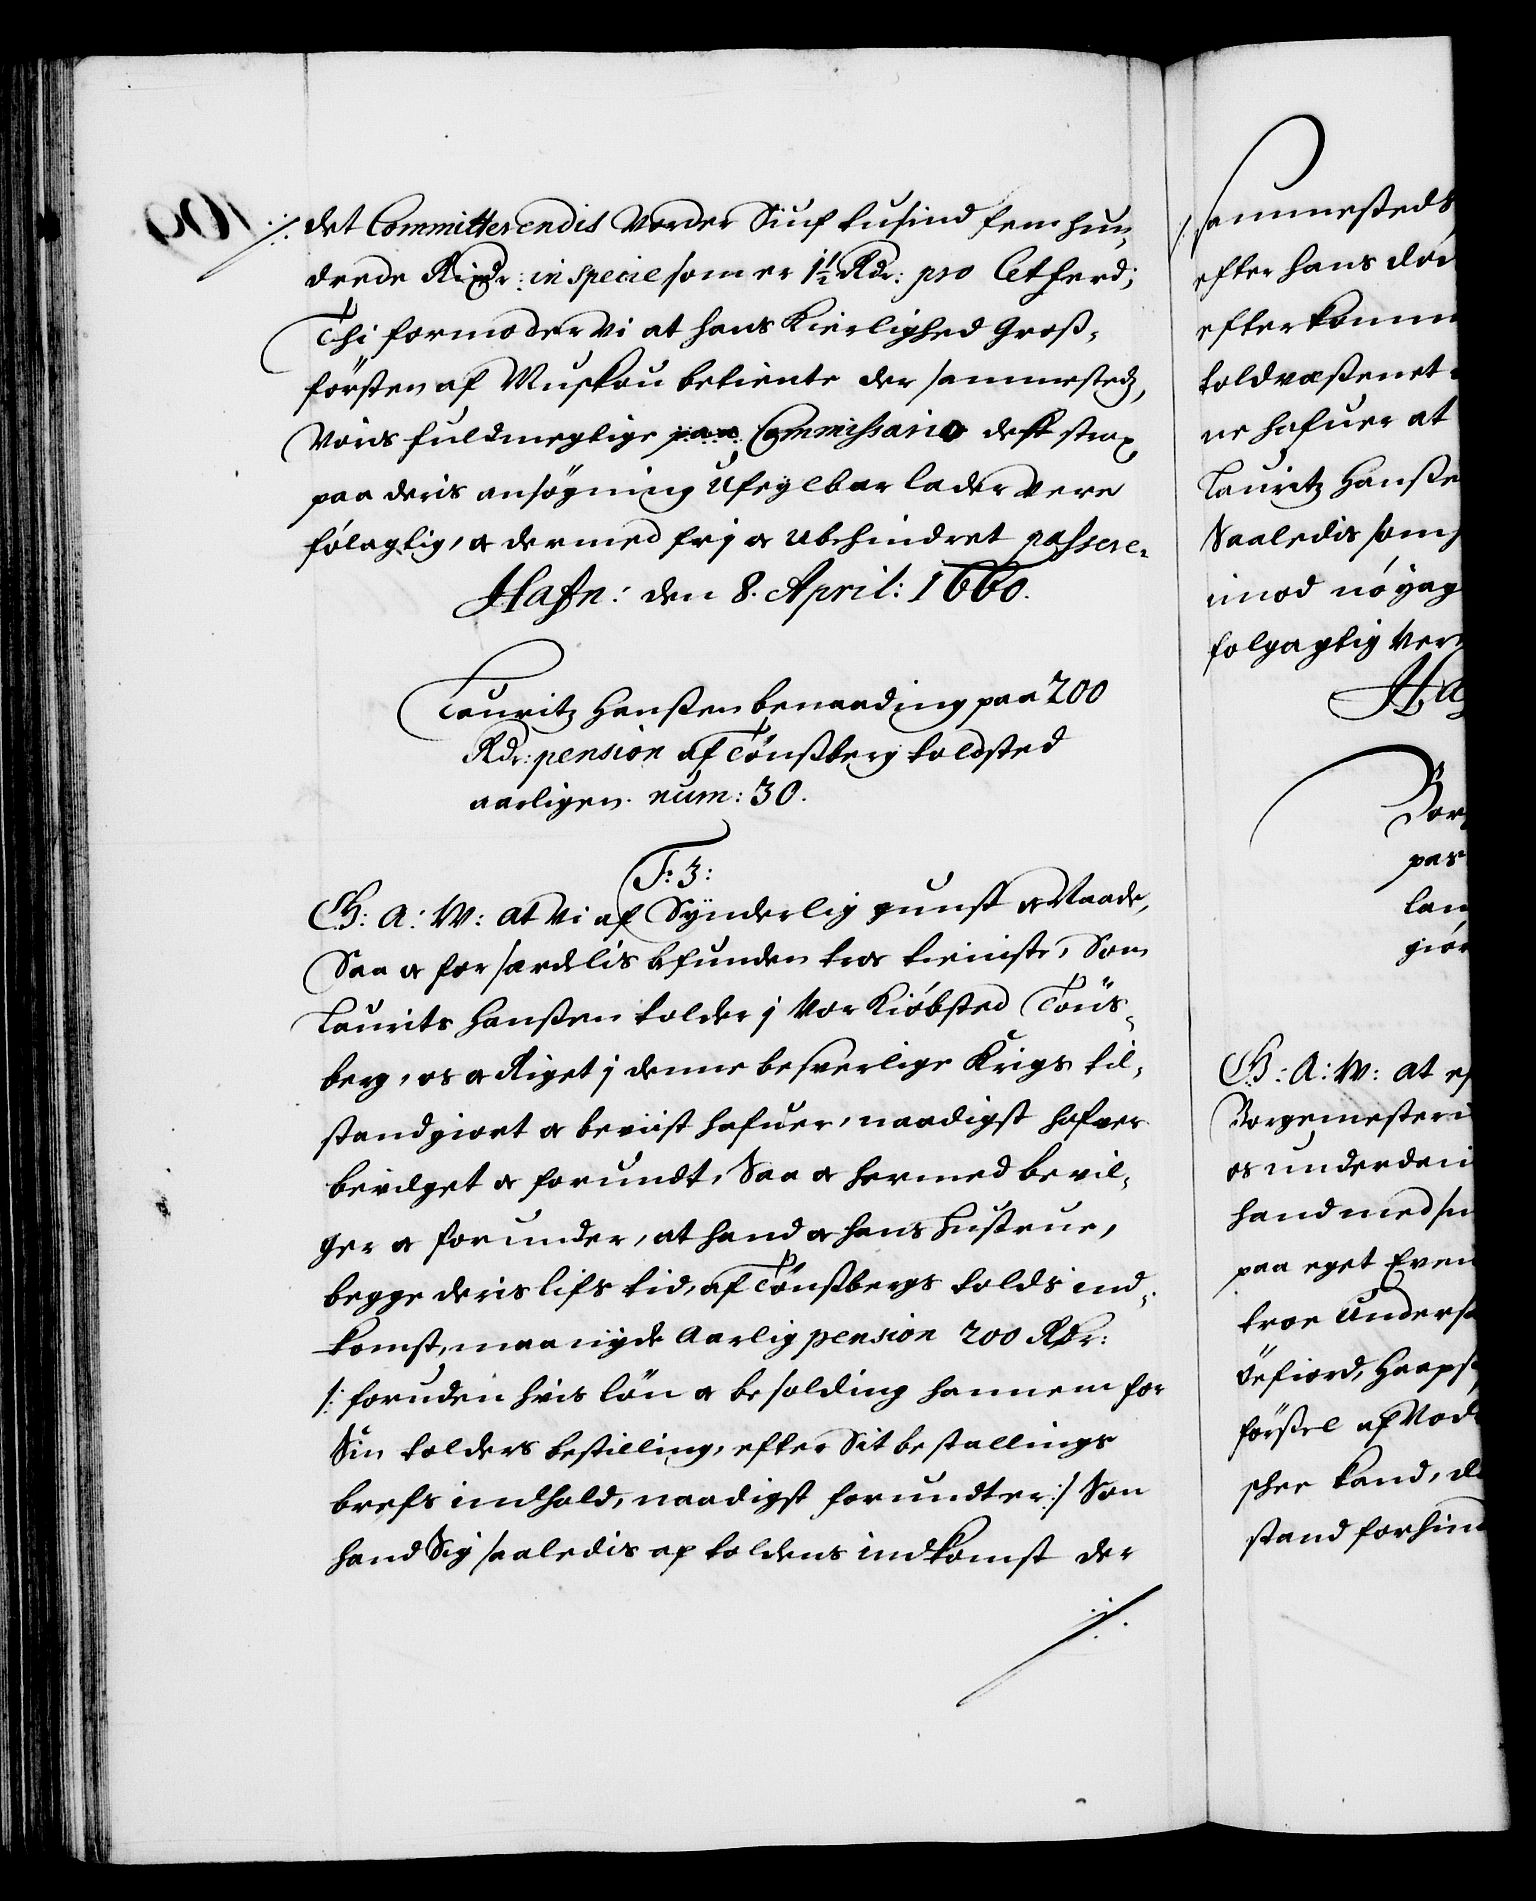 det Committerendis Vorder Siuf tusind fem hun,
drede Rixdr: in specie som er 1½ Rdr: pro Cetherd;
Thi formoder vi at hans Kierlighed Groß,
försten af Muskou betiente der sammestedz,
Voris fuldmegtige Commissario deslt strax
paa deris ansögning Ufeylbar lader vere
fölagtig, oc dermed frj oc ubehindret passere.
Hafn: den 8. April: 1660.
Lauritz Hanßen benaading paa 200
Rdr: pension af Tönßberg toldsted
aarligen. num: 30.
F: 3:
G: A: W: at Vi af Synderlig gunst oc Naade,
Saa oc for særdelis befunden troe tieniste, Som
Laurits Hanßen tolder j Vor Kiöbsted Töns,
berg, os oc Riget j denne besverlige Krigs til,
stand giort oc beviist hafuer, naadigst hafver
bevilget oc forundt, Saa oc hermed bevil,
ger oc forunder, at hand oc hans Hustrue,
begge deris lifs tid, af Tönßbergs tolds ind,
komst, maa nyde Aarlig pension 200 Rdr:
/: foruden hvis lön oc besolding hannem for
Sin tolders bestilling, efter Sit bestallings
brefs indhold, naadigst forundt er :/ Som
hand Sig saaledis af toldens indkomst der
sammesteds
efter hans död
efterkomm
toldvæßenet
ne hafuer at
Lauritz Hanße
Saaledis som
imod nöyag
folgagtig Ver
Ha
Bor
pas
lan
giör
G: A: W: at ef
Borgemester
os underdani
hand med sin
paa eget Even
troe Undersa
öefiord, Haaps
förßel af Nod
skee kand, d
stand forhind